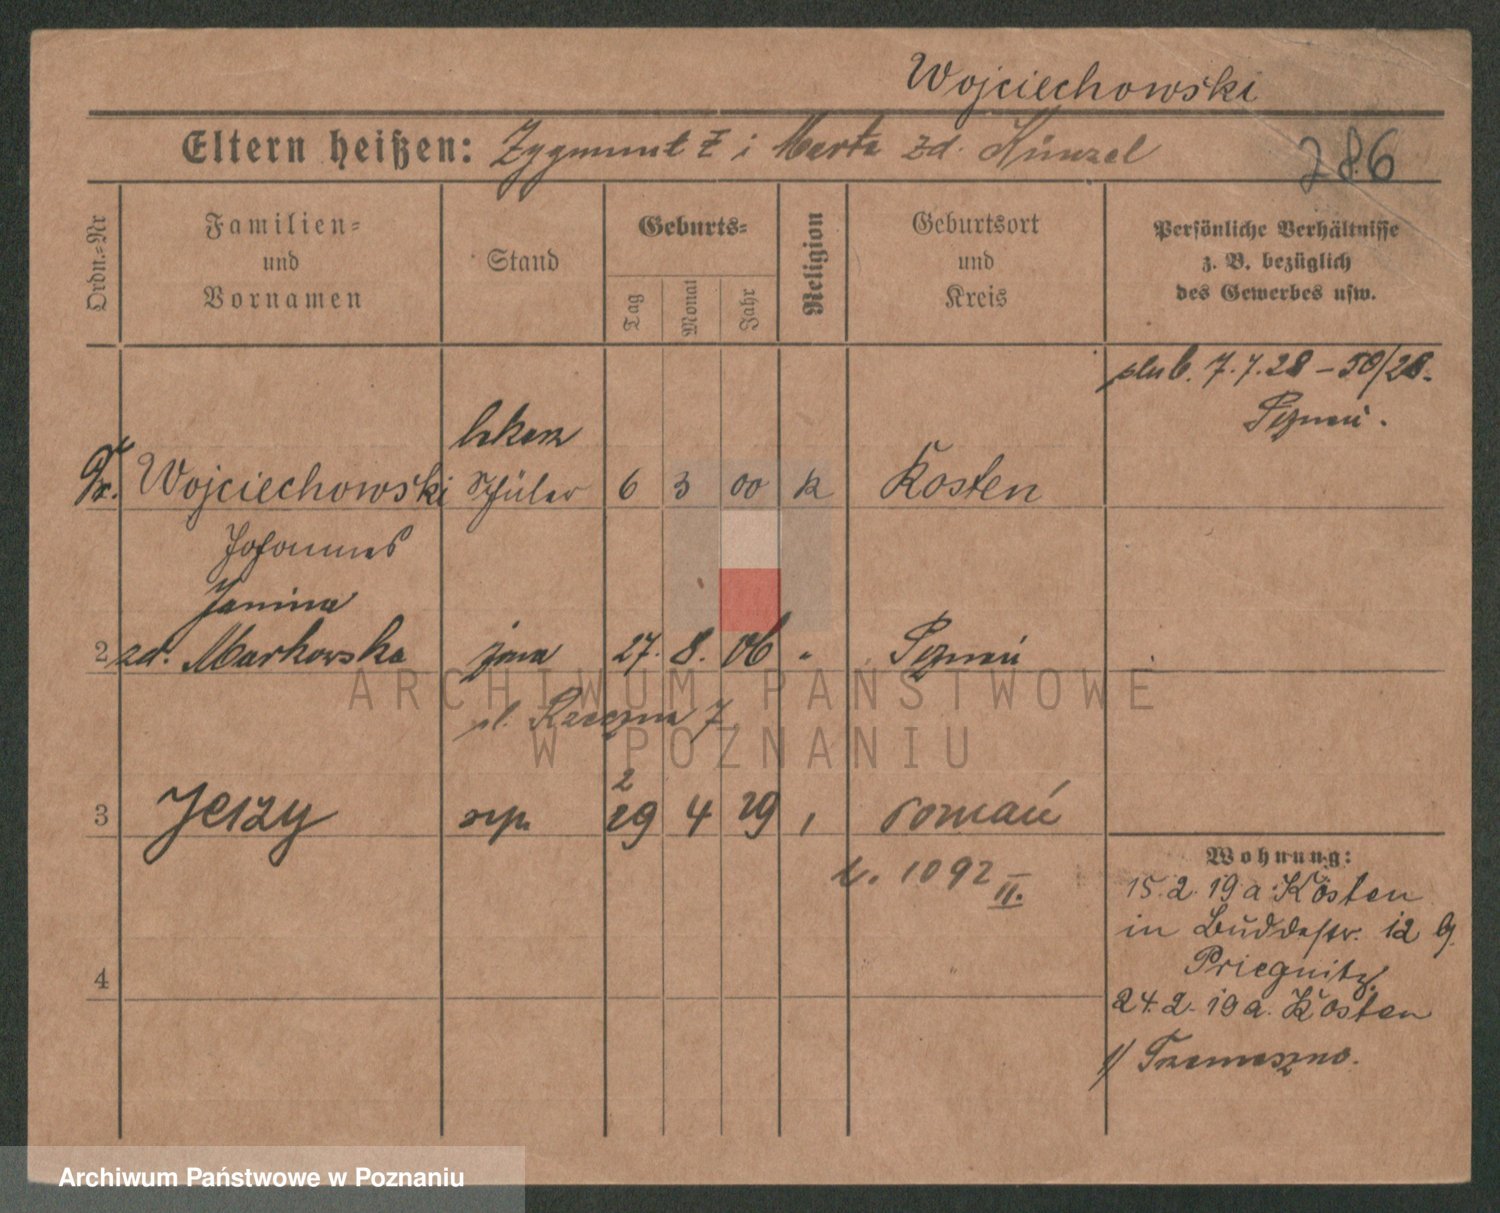 Wojciechowski
Eltern heißen: Zygmunt Ż i Marta zd. Künzel
286
Ordn.=Nr
Familien=
und
Vornamen
Stand
Geburts=
Tag
Monat
Jahr
Religion
Geburtsort
und
Kreis
Persönliche Verhältnisse
z. B. bezüglich
des Gewerbes usw.
ślub. 7.7.28 – 50/28.
Poznań.
Wojciechowski Schüler 6 3 00 k Kosten
Johannes
Janina
2 zd. Markowska żona 27. 8. 06 " Poznań
pl. 7
2
3 Jerzy syn 29 4 29 Poznań
L. 1092 II.
4
Wohnung:
15.2.19 a. Kosten
in Buddestr. 12 b.
Priegnitz.
24.2.19 a. Kosten
1/ Trzemeszno.
ARCHIWUM PAŃSTWOWE
W POZNANIU
Archiwum Państwowe w Poznaniu